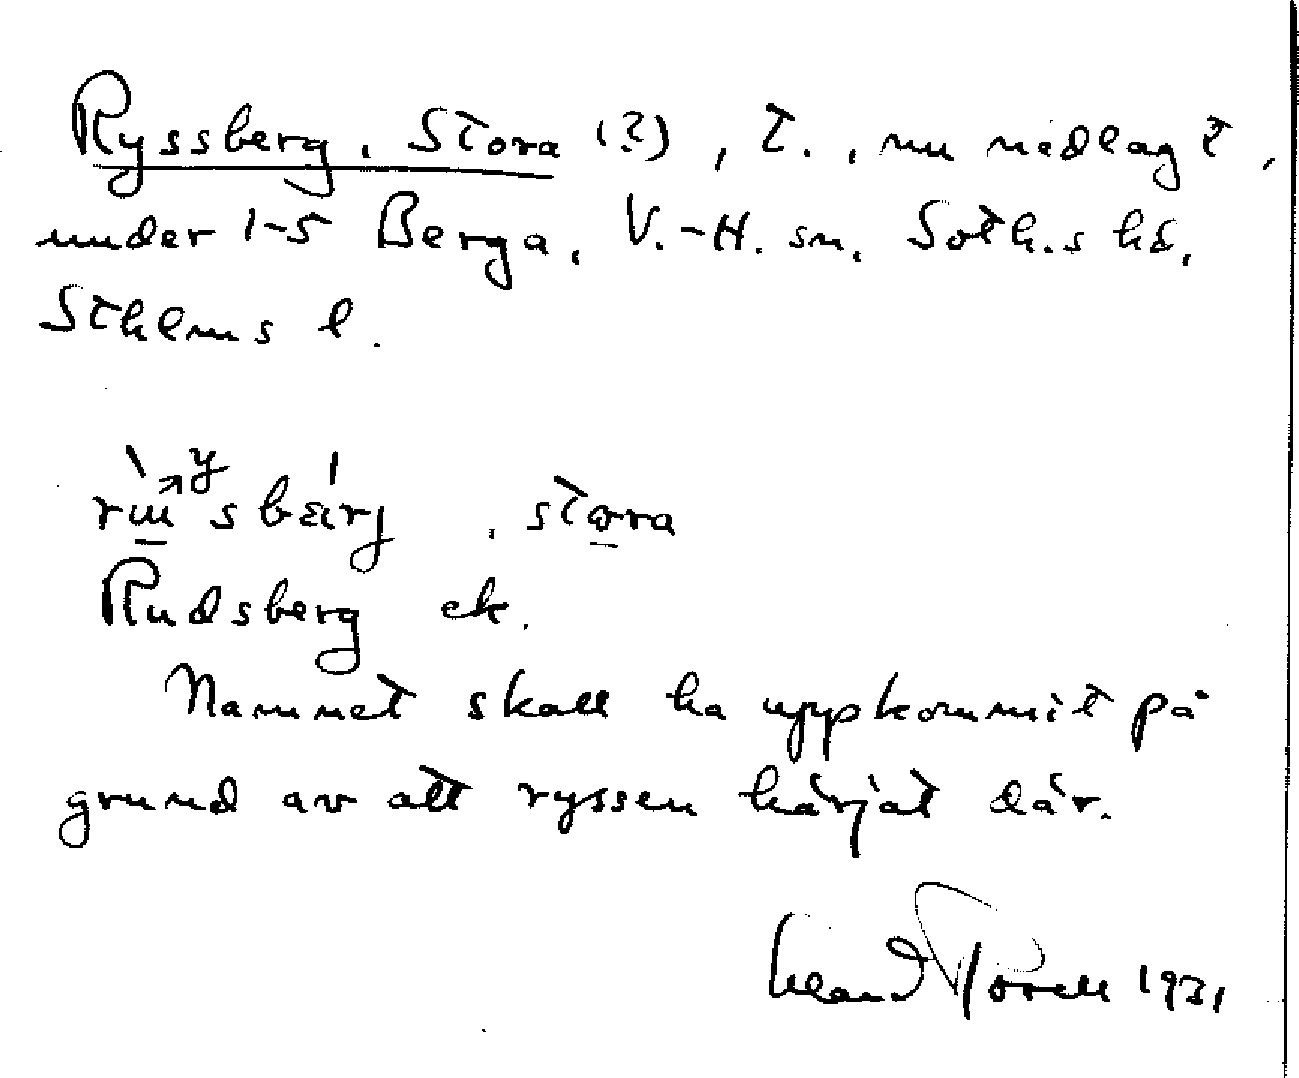 Ryssberg, Stora (?), t., nu nedlagt,
under 1-5 Berga, V.-H. sn, Soth.s hd,
Sthlms l.
, stora
Rudsberg ek.
Namnet skall ha uppkommit på
grund av att ryssen härjat där.
1931